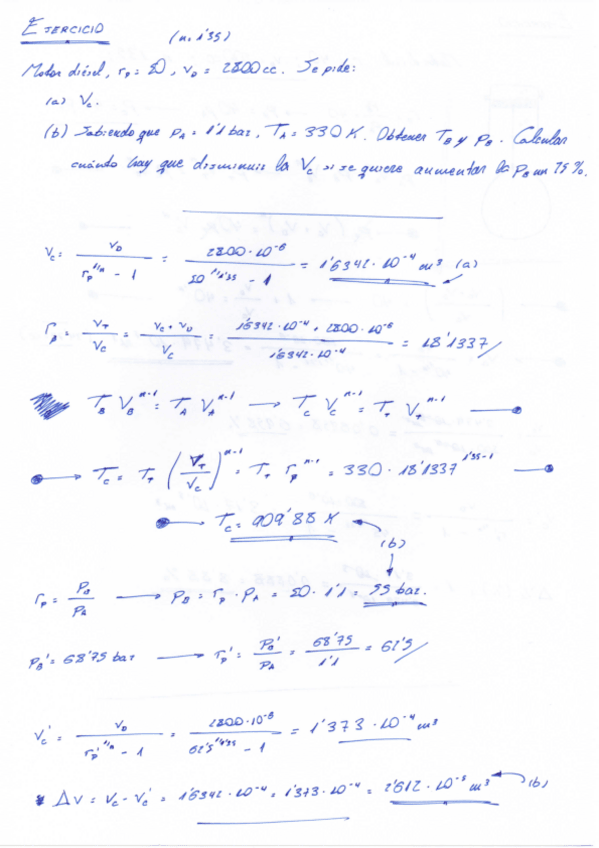 EJERCICIO
(n=1'35)
Motor diésel, rp = 50, VD = 2800 cc. Se pide:
(a) Vc.
(b) Sabiendo que PA = 1'1 bar, TA = 330 K. Obtener TB y PB. Calcular
cuánto hay que disminuir la Vc si se quiere aumentar la PB un 25%.
Vc = VD / (rp^(1/n) - 1) = 2800·10^-6 / (50^(1/1'35) - 1) = 1'6342·10^-4 m³ (a)
rρ = VT/Vc = (Vc + VD)/Vc = (1'6342·10^-4 + 2800·10^-6) / 1'6342·10^-4 = 18'1337
TB VB^(n-1) = TA VA^(n-1) → Tc Vc^(n-1) = TT VT^(n-1)
→ Tc = TT (VT/Vc)^(n-1) = TT rρ^(n-1) = 330·18'1337^(1'35-1)
→ Tc = 909'88 K
(b)
rp = PB/PA → PB = rp·PA = 50·1'1 = 55 bar.
PB' = 68'75 bar → rp' = PB'/PA = 68'75/1'1 = 62'5
Vc' = VD / (rp'^(1/n) - 1) = 2800·10^-6 / (62'5^(1/1'35) - 1) = 1'373·10^-4 m³
* ΔV = Vc - Vc' = 1'6342·10^-4 - 1'373·10^-4 = 2'612·10^-5 m³ (b)